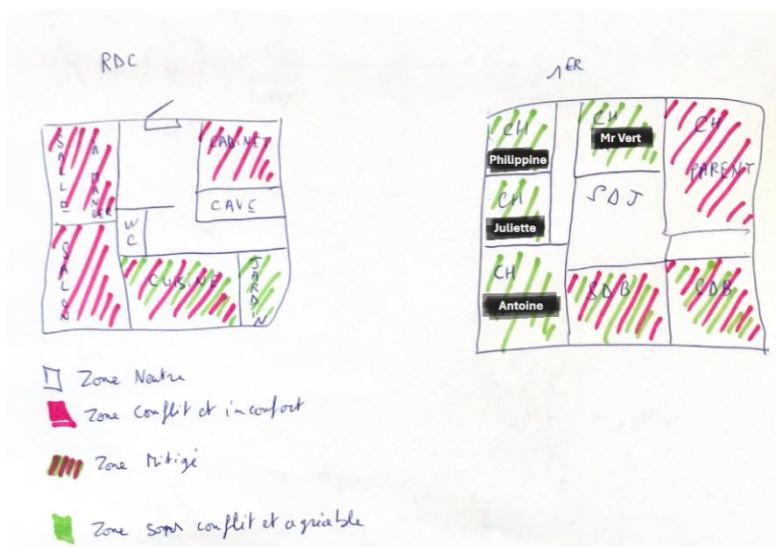 RDC
1ER
SALLE
A MANGER
CABINET
CAVE
WC
SALON
CUISINE
JARDIN
CH
Philippine
CH
Mr Vert
CH
PARENT
CH
Juliette
SDJ
CH
Antoine
SDB
SDB
Zone Neutre
Zone conflit et inconfort
Zone Mitigé
Zone sans conflit et agréable